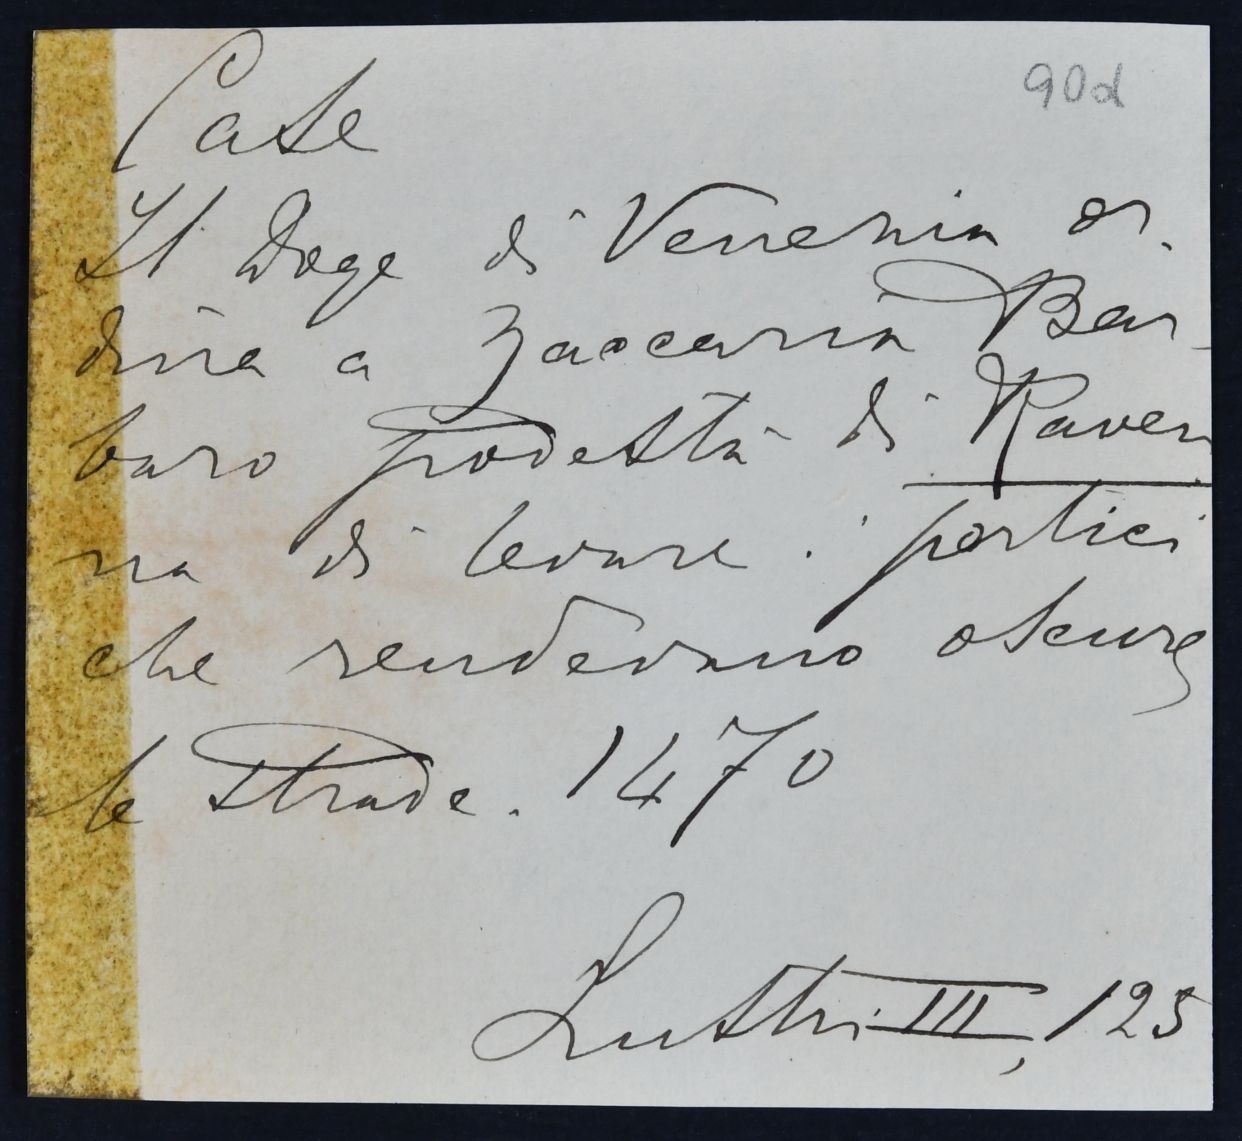 90d
Case
Il Doge di Venezia or-
dina a Zaccaria Bar-
baro podestà di Raven
na di levare i portici
che rendevano oscure
le strade. 1470
Lustri III, 125